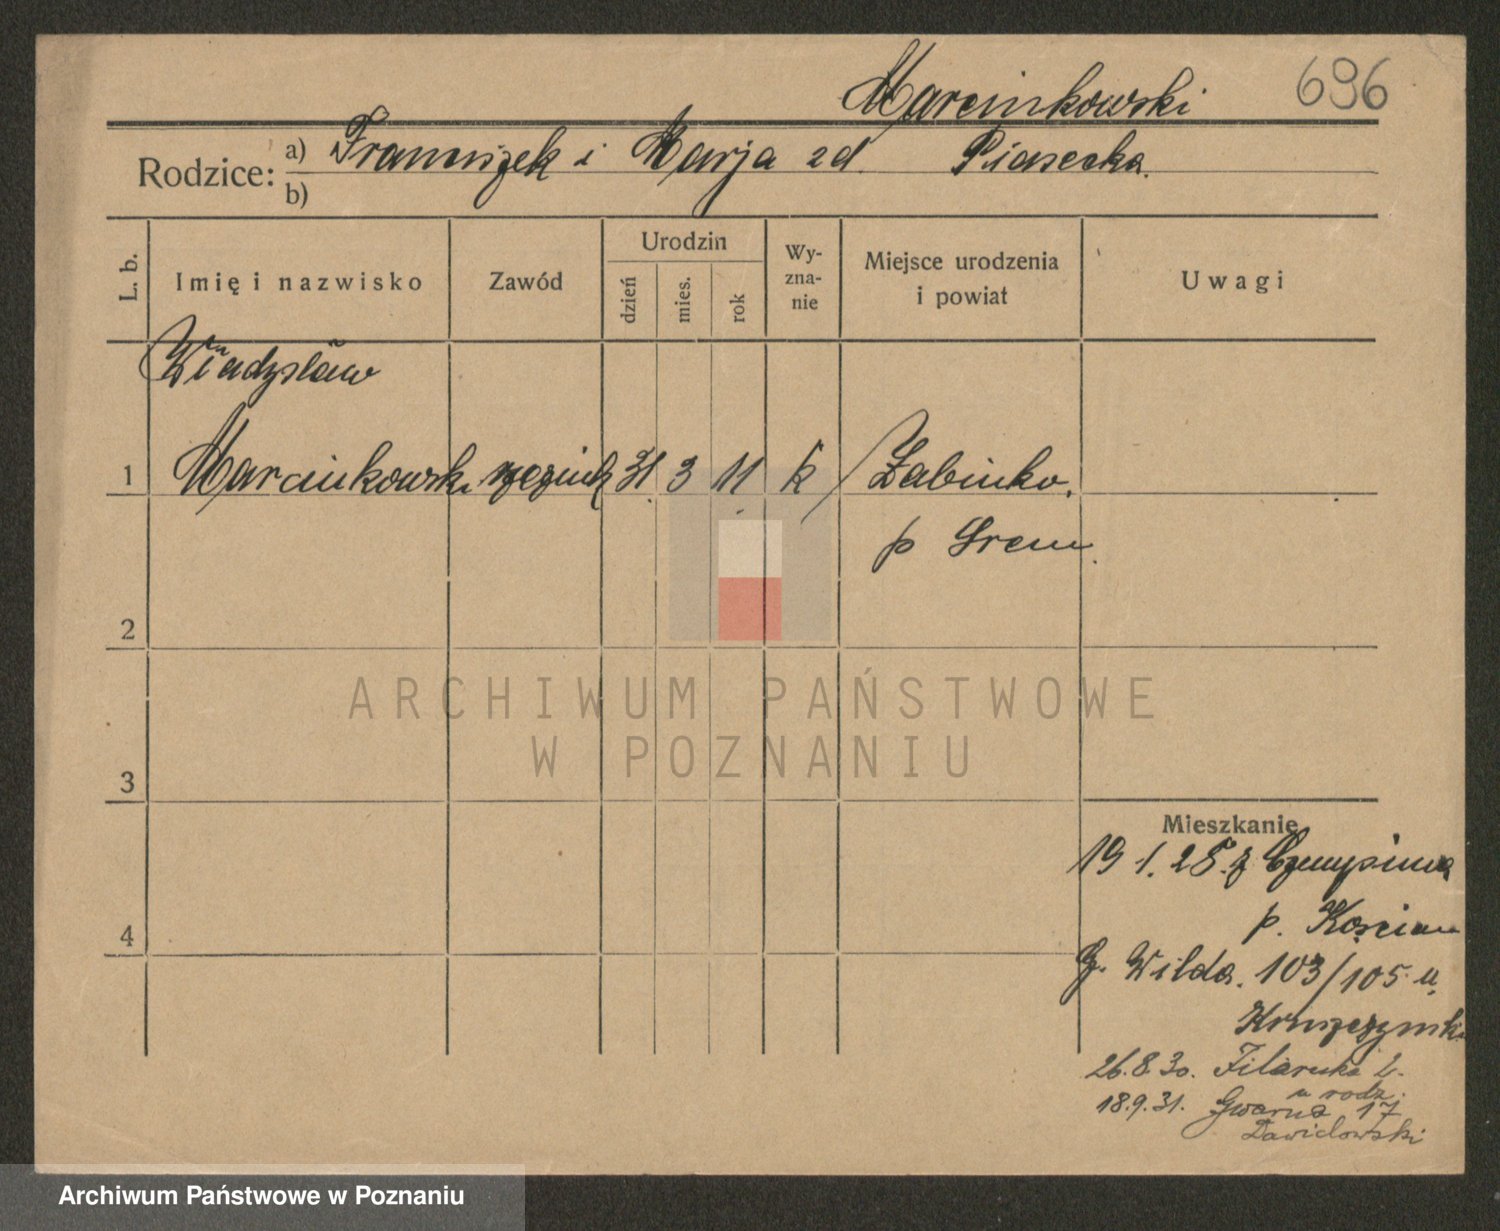 Marcinkowski 696
Rodzice: a) Franciszek i Marja zd. Piasecka.
b)
L. b. Imię i nazwisko Zawód Urodzin dzień mies. rok Wyznanie Miejsce urodzenia i powiat Uwagi
Władysław
1 Marcinkowski rzeźnik 31 3 11 k Żabinko.
p Śrem.
2
ARCHIWUM PAŃSTWOWE
W POZNANIU
3
Mieszkanie
19 1. 28. z Czempinia
p. Kościan
4
G. Wilda. 103/105 u.
26.8.30. Filarecka 2.
u rodz.
18.9.31. Gwarna 17
Dawidowski
Archiwum Państwowe w Poznaniu